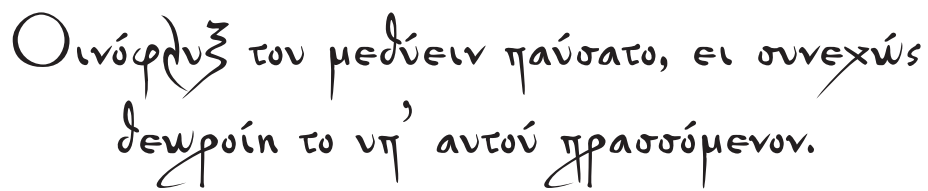 Οινόφλυξ του μεθύειν παύσατο, ει συνεχώς
θεωροίη το υπ’ αυτού πρασσόμενον.